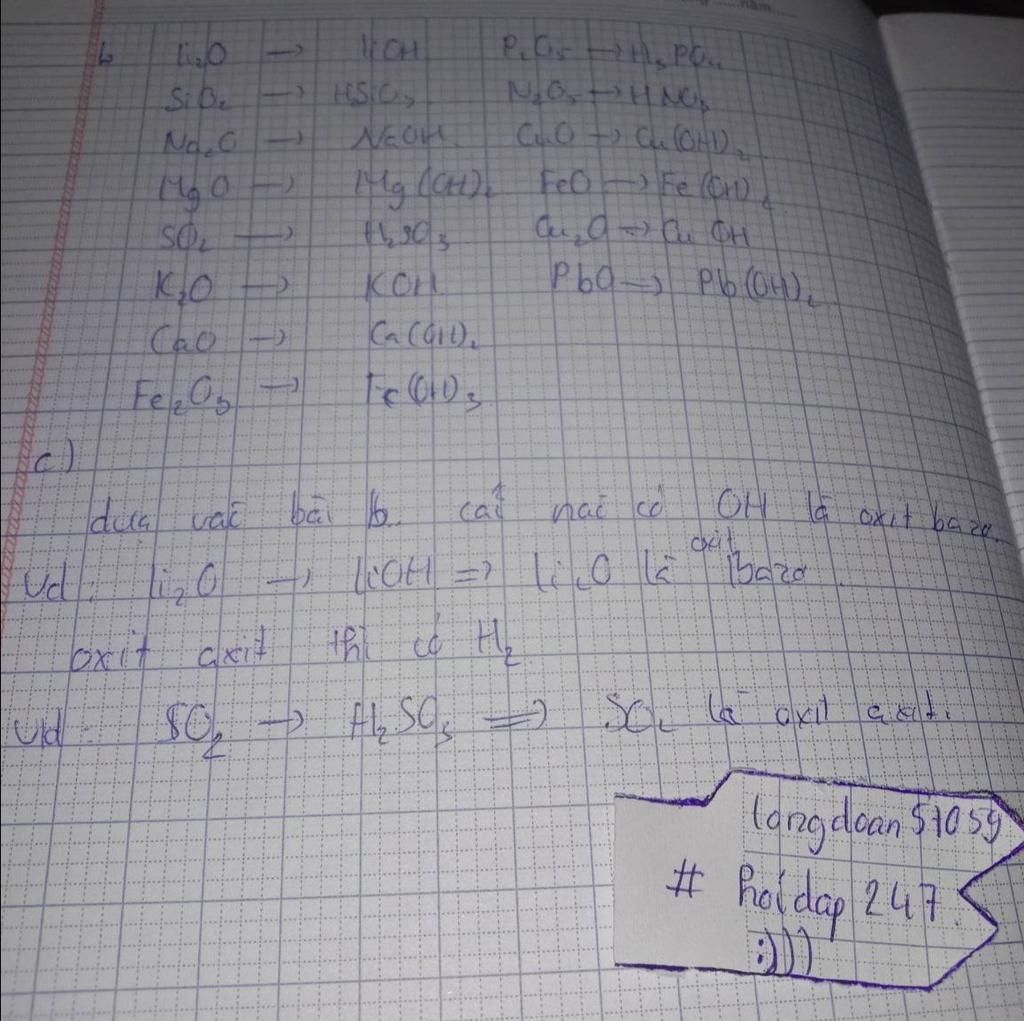 b Li₂O → LiOH P₂O₅ → H₃PO₄
SiO₂ → HSiO₃ N₂O₅ → HNO₃
Na₂O → NaOH CuO → Cu(OH)₂
MgO → Mg(OH)₂ FeO → Fe(OH)₂
SO₂ → H₂SO₃ Cu₂O → CuOH
K₂O → KOH PbO → Pb(OH)₂
CaO → Ca(OH)₂
Fe₂O₃ → Fe(OH)₃
c)
dựa vào bài b. cái nào có OH là oxit bazo.
Vd: li₂O → liOH => li₂O là oxit bazo
oxit axit thì có H₂
Vd: SO₂ → H₂SO₃ => SO₂ là oxit axit.
longdoan51059
# hoidap 247.
:)))